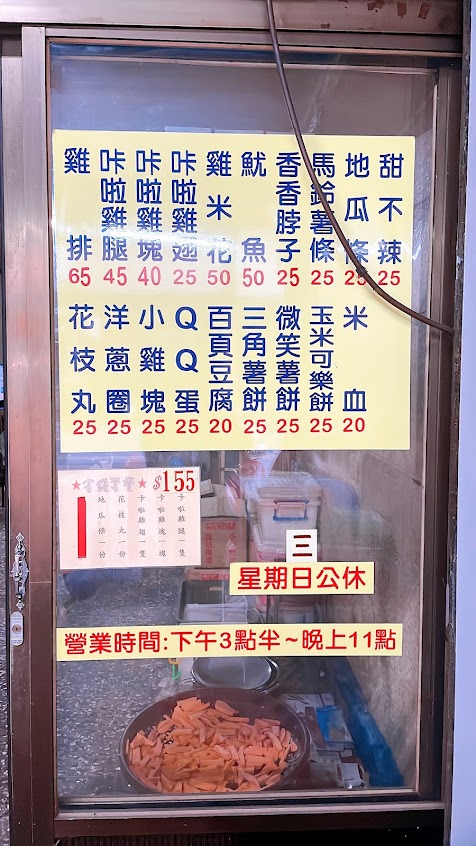 雞排 65
咔啦雞腿 45
咔啦雞塊 40
咔啦雞翅 25
雞米花 50
魷魚 50
香香脖子 25
馬鈴薯條 25
地瓜條 25
甜不辣 25
花枝丸 25
洋蔥圈 25
小雞塊 25
QQ蛋 25
百頁豆腐 20
三角薯餅 25
微笑薯餅 25
玉米可樂餅 25
米血 20
$155
卡啦雞腿一隻
卡啦雞塊一塊
卡啦雞翅一隻
花枝丸一份
地瓜條一份
三
星期日公休
營業時間:下午3點半~晚上11點